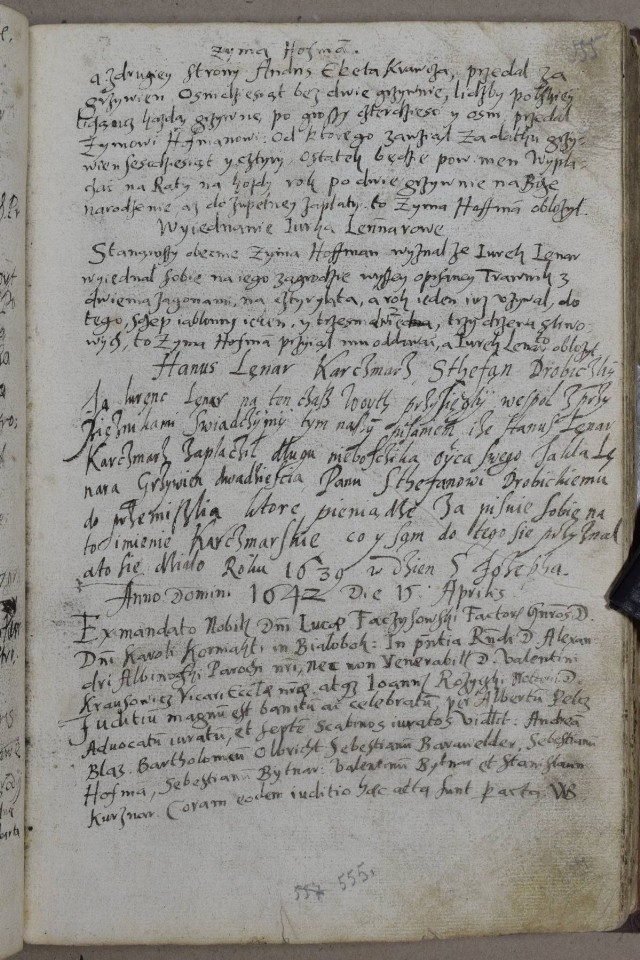 Zyma Hofman.
555
a zdrugiey strony Andris Ekieta Krawcza, przedal za
grzywien Osmdziesiąt bez dwie grzywnie, liczby polskiey
kazdą grzywnę po groszy czterdziesci y osm, przedal
Zymowi Hofmanowi: od ktorego zawziął Zadatku grzy-
wien sescdziesiąt y cztyry, ostatek będzie powinien wypla-
czac na Raty na kozdy rok po dwie grzywnie na Boze
narodzenie, az do zupelney zaplaty. to Zyma Hoffmā oblozyl.
Wyiednanie Iurka Lennarowe
Stanąwszy obecnie Zyma Hoffman wyznal ze Iurek Lenar
wyiednal sobie na iego zagrodzie wyszey opisaney Trawnik z
dwiema zagonami, na cztyry lata, a rok ieden iuz uzywal, do
tego, sczep iablonny ieden, y trzesn, trzy drzewa sliwo-
wych, to Zyma Hofmā przyiął mu oddawai, a Iurek Lenar to oblozyl.
Hanus Lenar Karczmarz, Sthefan Drobiczki
Ja lurenc Lenar na ten czasz Woyth przysięgły wespol z przy
sieznikami swiadczymy tym naszy pisaniem isze Hanus Lenar
Karczmarz zaplaczil dlugu nieboszczika oyca swego Jakuba Le
nara Grzywien dwadziescia Panu Sthefanowi Drobickiemu
do przemislia ktore pieniądze za pisuie sobie na
to imienie Karczmarskie co y sąm do tego sie przyznal
a to sie dzialo Roku 1639 w dzien S Jozepha.
Anno Domini 1642 Die 15: Aprilis
Ex mandato Nobilis Dni Lucæ Faczysowski Factoris Gnrosi D.
Dni Karoli Korniakti in Bialoboki: In pntia Rndi D. Alexan
dri Albinowski Parochi nri, nec non Venerabilis D. Valentini
Krausowicz Vicarij Eccl̄æ nræ atq; Ioannis Rozyiski D.
Iuditiū magnū est banitū ac celebratū, per Albertū Pelcz
Advocatū iuratū, et septē Scabinos iuratos videlit: Andreā
Blaz. Bartholomeū Olbricht Sebestianū Barawelder, Sebestianū
Hofma, Sebestianū Bytnar: Valentinū Bytnar et Stanislaum
Kurznar. Coram eodem iuditio hæc acta sunt pacta.
557 555.